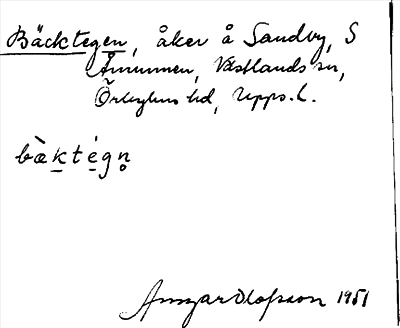 Bäcktegen, åker å Sandby, S
Ånunmen, Västlands sn,
Örbyhus hd, Upps. L.
bæ̀ktégn̥
Ansgar Olofsson 1951